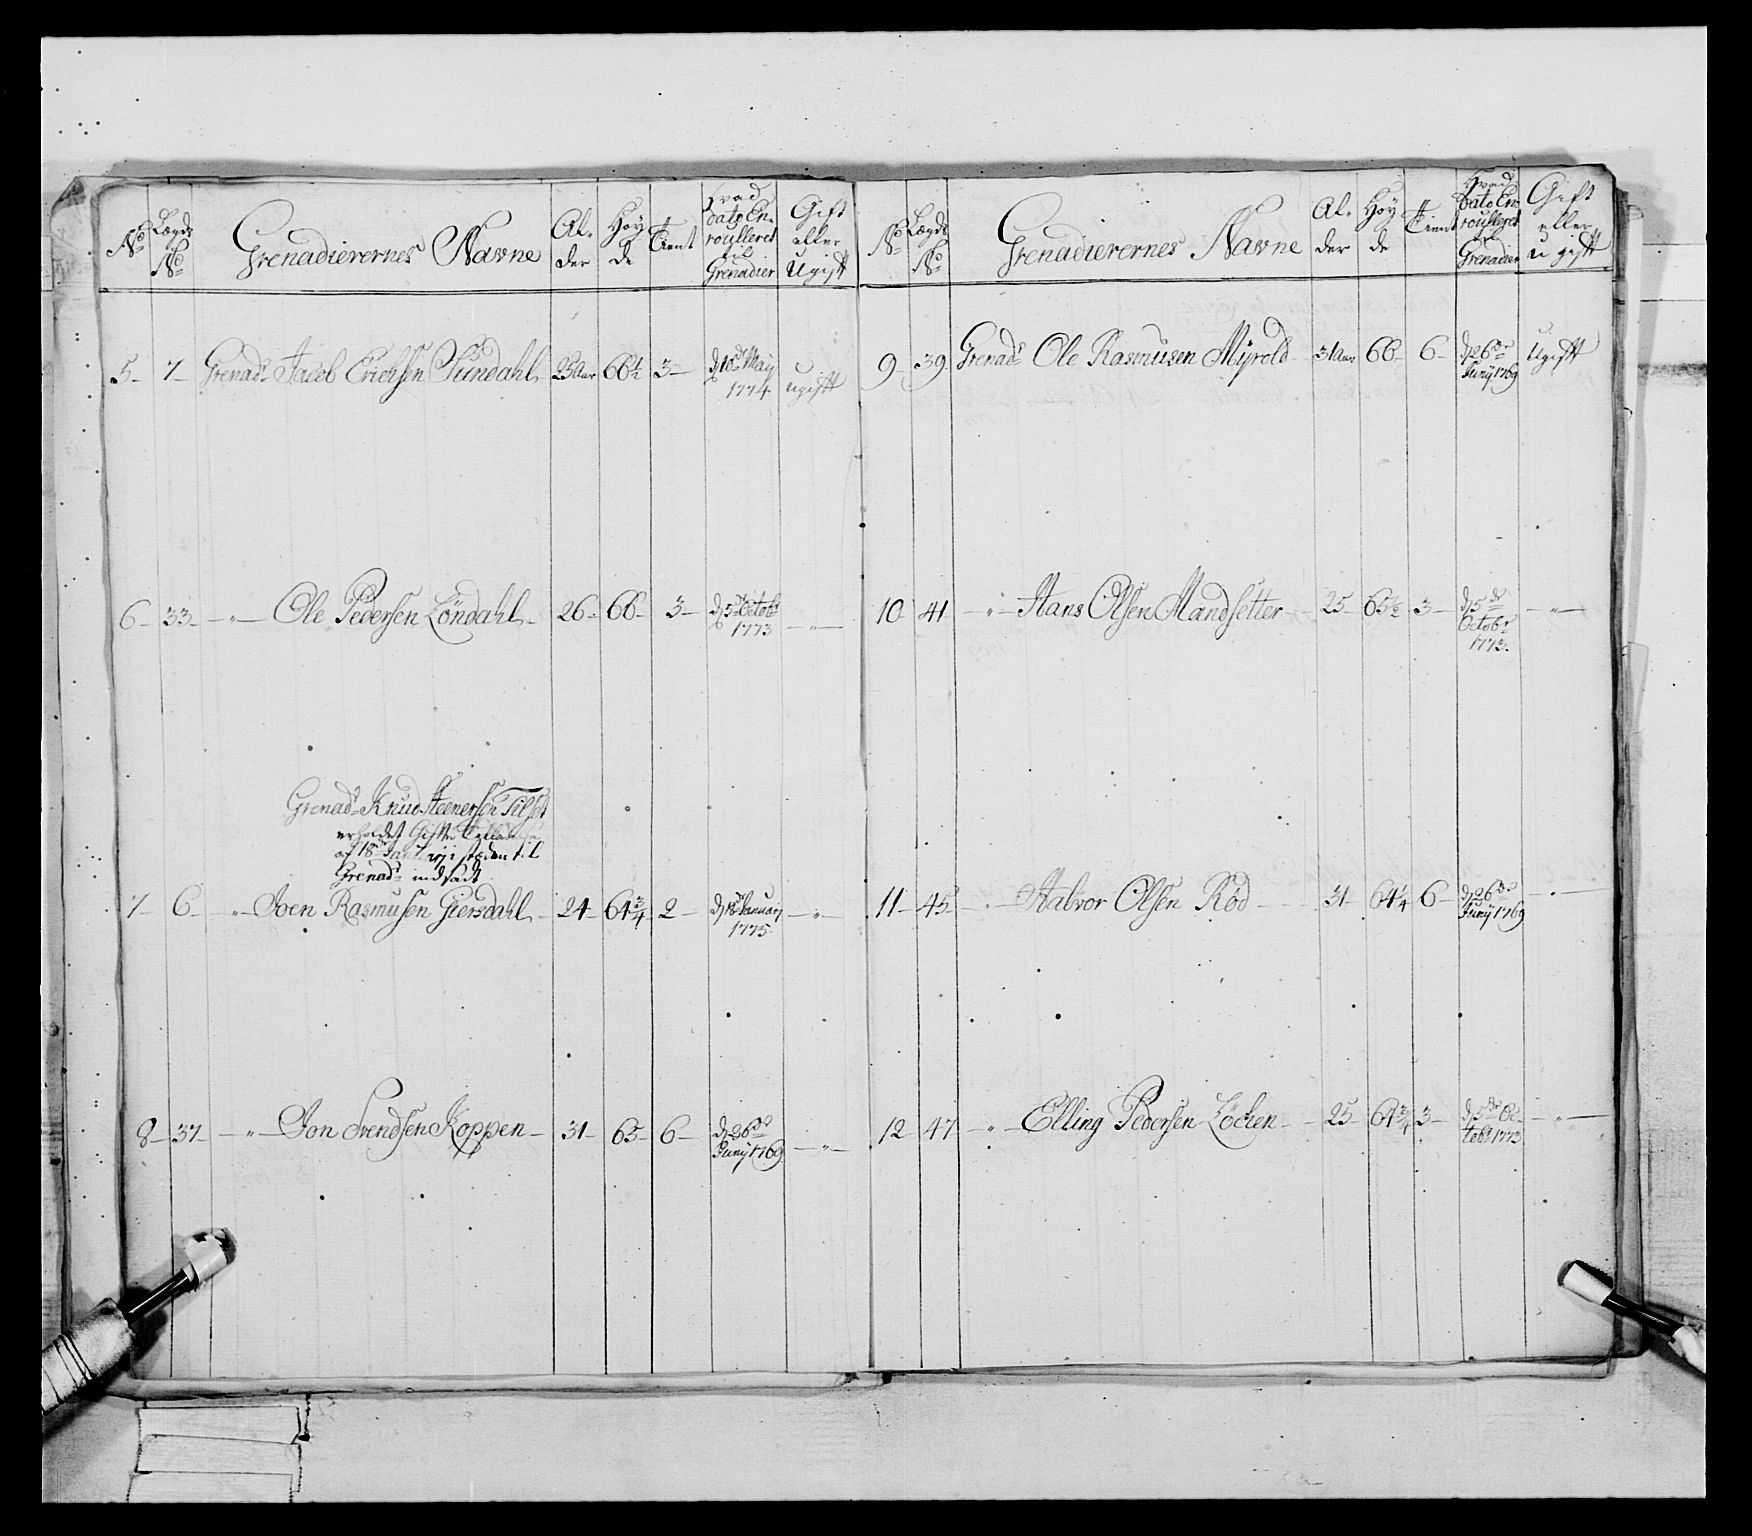 No Lægds No Grenadierernes Navne Al- der Høy de Tient Hvad dato En- roulleret til Grenadier Gift eller Ugift
5 7 Grenad: Jacob Erichsen Sundahl 25 Aar 66½ 3 d 18de Maij 1774 ugift
6 33 " Ole Pedersen Löndahl 26 66 3 d 5te Octobr 1773 "
Grenad: Knud Steenersen Tilset
erholdet Gifte
af 18de i steden til
Grenad: indsadt
7 6 " Joen Rasmusen Giersdahl 24 64¾ 2 d 18de Januarij 1775 "
8 37 " Jon Svendsen Koppen 31 65 6 d 26de Junij 1769 "
No Lægds No Grenadierernes Navne Al- der Høy de Tient Hvad dato En- roulleret til Grenadier Gift eller ugift
9 39 Grenad: Ole Rasmusen Myrold 31 Aar 66 6 d 26de Junij 1769 Ugift
10 41 " Hans Olsen Mandsetter 25 65½ 3 d 5te Octobr 1773 "
11 45 " Halvor Olsen Rød 31 64¼ 6 d 26de Junij 1769 "
12 47 " Elling Pedersen Löchen 25 64¾ 3 d 5te Oc- tobr 1773 "